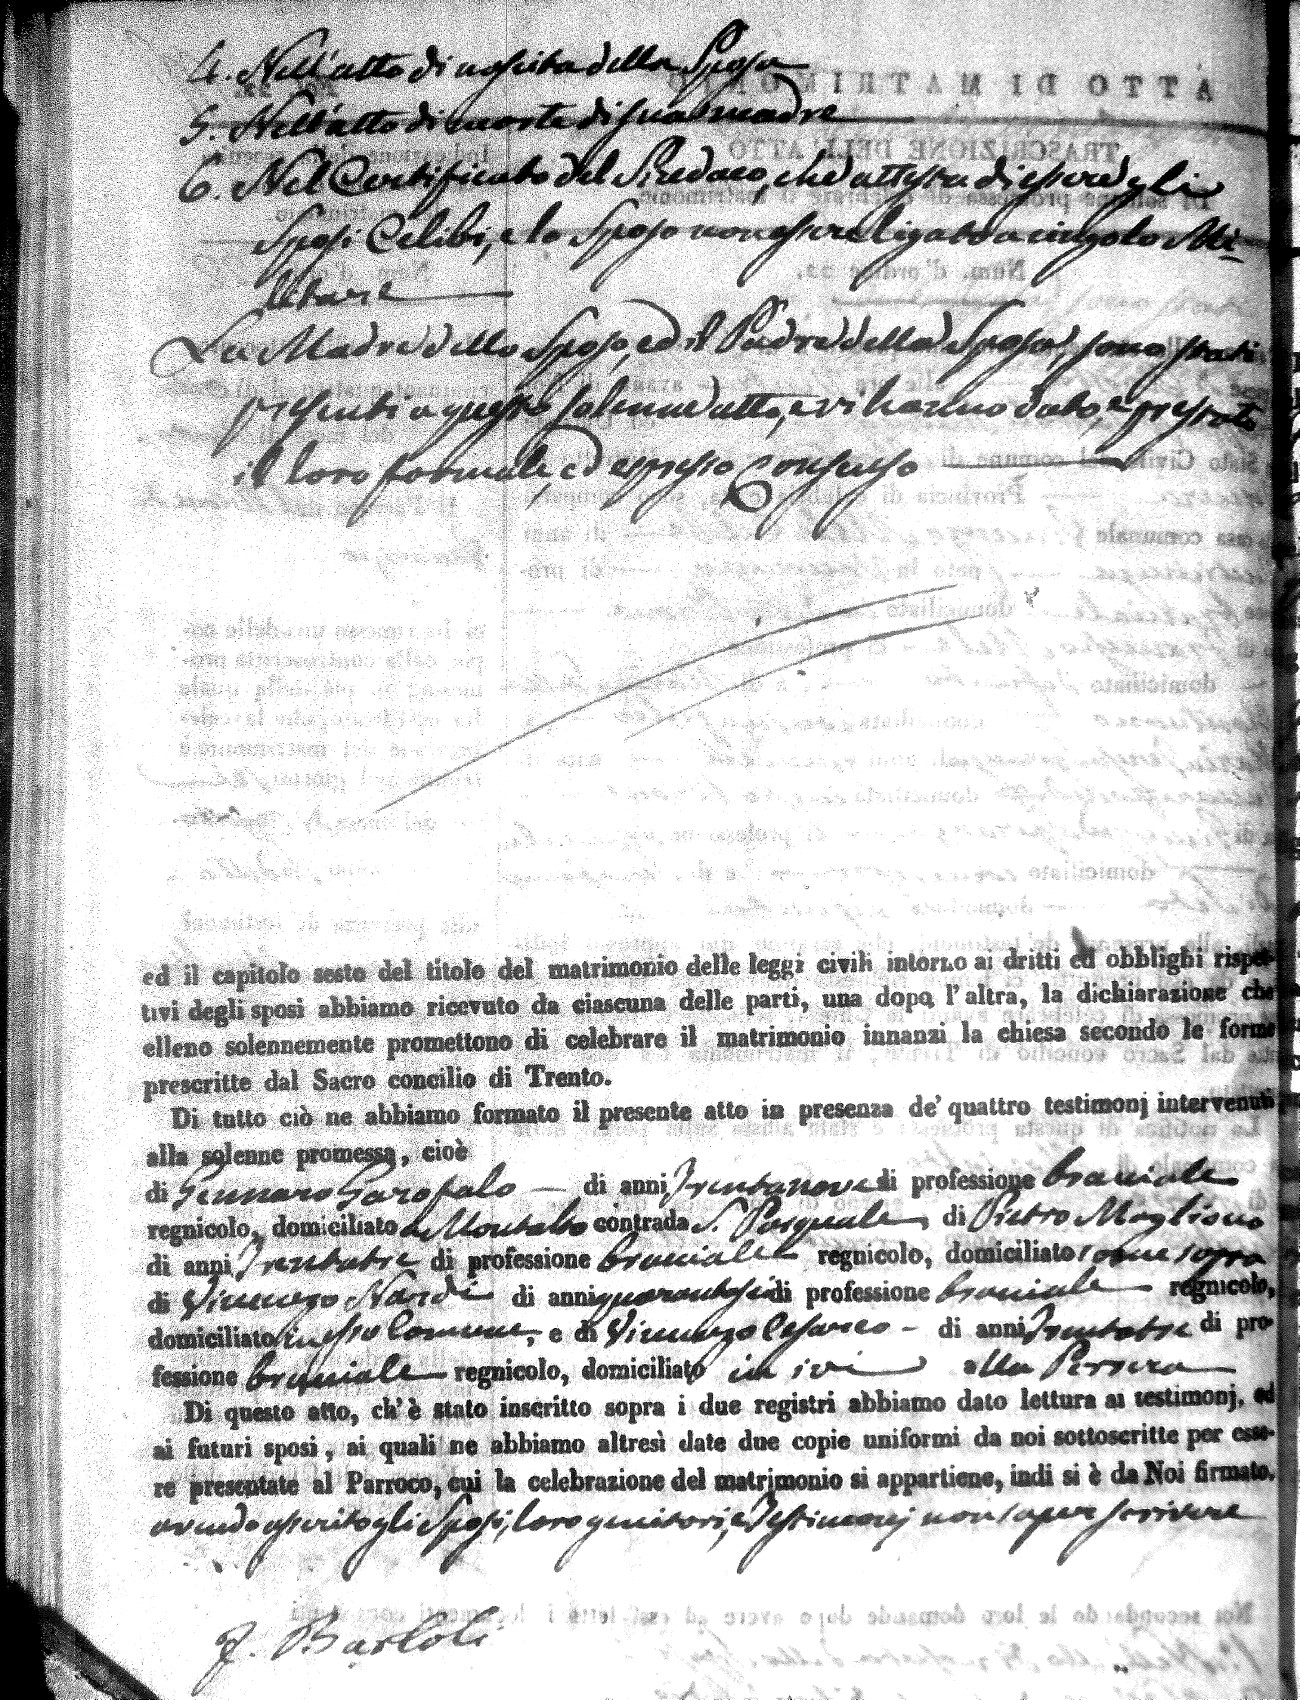 4. Nell'atto di nascita della Sposa
5. Nell'atto di morte di sua madre
6. Nel Certificato del Sindaco, che attesta di essere gli
Sposi Celibi, e lo Sposo non essere ligato a cingolo Mi-
litare
La Madre dello Sposo, ed il Padre della Sposa, sono stati
presenti a questo solenne atto, e vi hanno dato, e prestato
il loro formale, ed espresso Consenso
ed il capitolo sesto del titolo del matrimonio delle leggi civili intorno ai dritti ed obblighi rispet-
tivi degli sposi abbiamo ricevuto da ciascuna delle parti, una dopo l'altra, la dichiarazione che
elleno solennemente promettono di celebrare il matrimonio innanzi la chiesa secondo le forme
prescritte dal Sacro concilio di Trento.
Di tutto ciò ne abbiamo formato il presente atto in presenza de' quattro testimonj intervenuti
alla solenne promessa, cioè
di Gennaro Garofalo — di anni Trentanove di professione bracciale
regnicolo, domiciliato a Montalto contrada S. Pasquale, di Pietro Magliano
di anni Trentatre di professione bracciale regnicolo, domiciliato come sopra
di Vincenzo Nardi di anni quarantasei di professione bracciale regnicolo,
domiciliato in esso Comune, e di Vincenzo Cesareo - di anni Trentatre di pro-
fessione bracciale regnicolo, domiciliato in ivi alla
Di questo atto, ch'è stato inscritto sopra i due registri abbiamo dato lettura ai testimonj, ed
ai futuri sposi, ai quali ne abbiamo altresì date due copie uniformi da noi sottoscritte per esse-
re presentate al Parroco, cui la celebrazione del matrimonio si appartiene, indi si è da Noi firmato,
avendo asserito gli Sposi, loro genitori, e Testimonj non saper scrivere
F. Bartoli